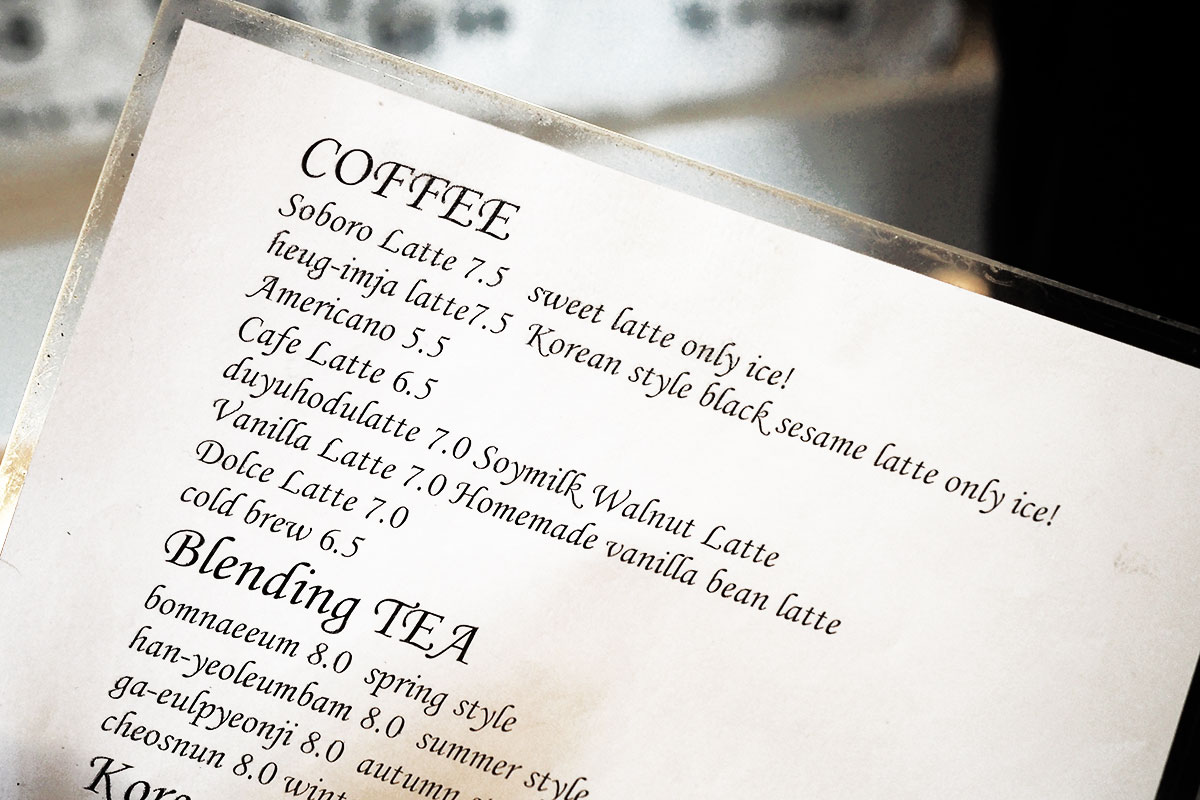 COFFEE
Soboro Latte 7.5 sweet latte only ice!
heug-imja latte7.5 Korean style black sesame latte only ice!
Americano 5.5
Cafe Latte 6.5
duyuhodulatte 7.0 Soymilk Walnut Latte
Vanilla Latte 7.0 Homemade vanilla bean latte
Dolce Latte 7.0
cold brew 6.5
Blending TEA
bomnaeeum 8.0 spring style
han-yeoleumbam 8.0 summer style
ga-eulpyeonji 8.0 autumn
cheosnun 8.0